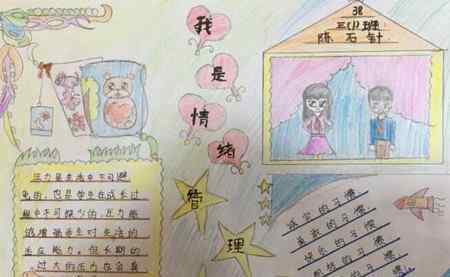 我是情绪管理
38
三(1)班
陈石针
压力是生活中不可避
免的,也是学生在成长过
程中不可缺少的,压力能
够增强学生对生活的
适应能力。但长期的
过大的压力在会身
的习惯
的习惯
快乐的习惯
的习惯